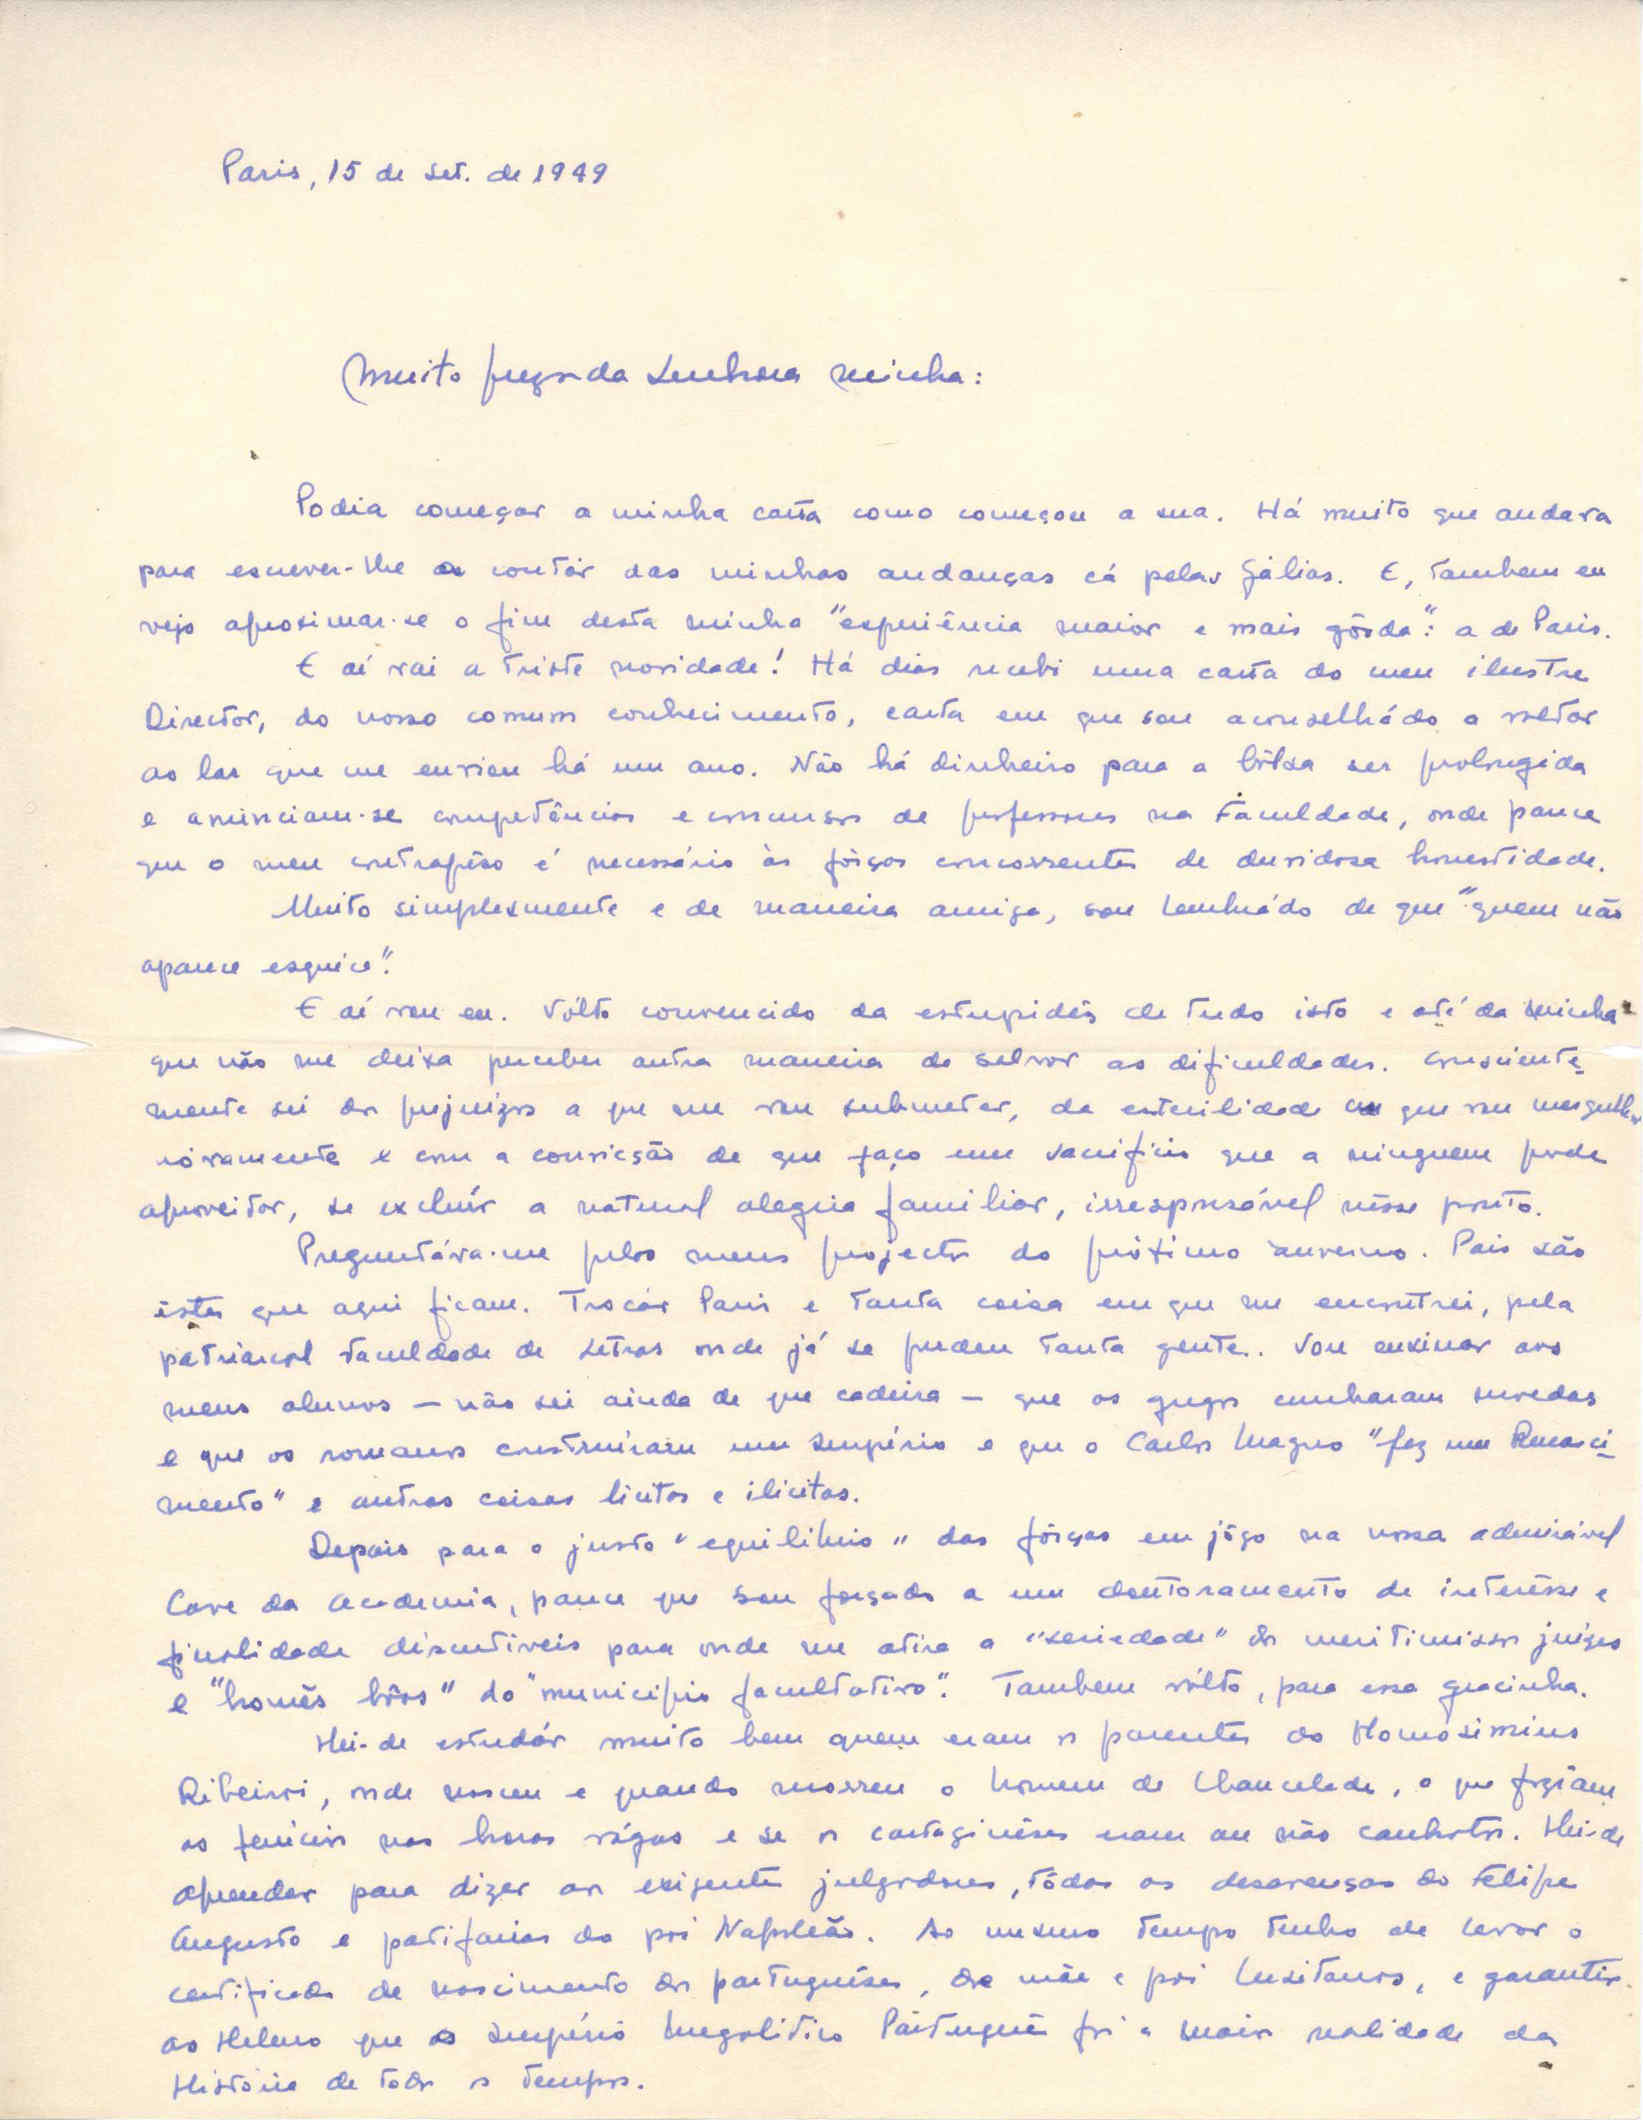 Paris, 15 de set. de 1949
Muito prezada Senhora minha:
Podia começar a minha carta como começou a sua. Há muito que andava
para escrever-lhe a contár das minhas andanças cá pelas Gálias. E, tambem eu
vejo aproximar-se o fim desta minha "experiência maior e mais gôrda": a de Paris.
E aí vai a triste novidade! Há dias recebi uma carta do meu ilustre
Director, do nosso comum conhecimento, carta em que sou aconselhádo a voltar
ao lar que me enviou há um ano. Não há dinheiro para a bôlsa ser prolongida
e anunciam-se competências e concursos de professores na Faculdade, onde parece
que o meu contrapêso é necessário às fôrças concorrentes de duvidosa honestidade.
Muito simplesmente e de maneira amiga, sou lembrádo de que "quem não
aparece esquece".
E aí vou eu. Vólto convencido da estupidês de tudo isto e até da minha
que não me deixa perceber outra maneira de salvar as dificuldades. Consciente-
mente sei os prejuizos a que me vou submeter, da esterilidade em que vou mergulhar
nóvamente e com a convicsão de que faço um sacrificio que a ninguem pode
aproveitar, se excluír a natural alegria familiar, irresponsável nêsse ponto.
Preguntáva-me pelos meus projectos do próximo inverno. Pois são
êstes que aqui ficam. Trocár Paris e tanta coisa em que me encontrei, pela
patriarcal Faculdade de Letras onde já se perdeu tanta gente. Vou ensinar aos
meus alunos — não sei ainda de que cadeira — que os gregos cunharam moedas
e que os romanos construíram um Império e que o Carlos Magno "fez um Renasci-
mento" e outras coisas licitas e ilicitas.
Depois para o justo "equilibrio" das fôrças em jôgo na nossa admirável
Cave da Academia, parece que sou forçado a um doutoramento de interêsse e
finalidade discutiveis para onde me atira a "seriedade" dos meritimissos juizes
e "homês bôns" do "municipio facultativo". Tambem vólto, para essa gracinha.
Hei-de estudár muito bem quem eram os parentes do Homosimius
Ribeiroi, onde nasceu e quando morreu o homem de Chancelade, o que faziam
os fenicios nas horas vágas e se os cartaginêses eram ou não canhotos. Hei-de
aprender para dizer aos exigentes julgadores, tôdas as desavenças do Felipe
Augusto e patifarias do pai Napoleão. Ao mesmo tempo tenho de levar o
certificado de nascimento dos portuguêses, de mãe e pai Lusitanos, e garantir
ao Heleno que o Império Megalitico Pòrtuguês foi a maior realidade da
História de todos os tempos.